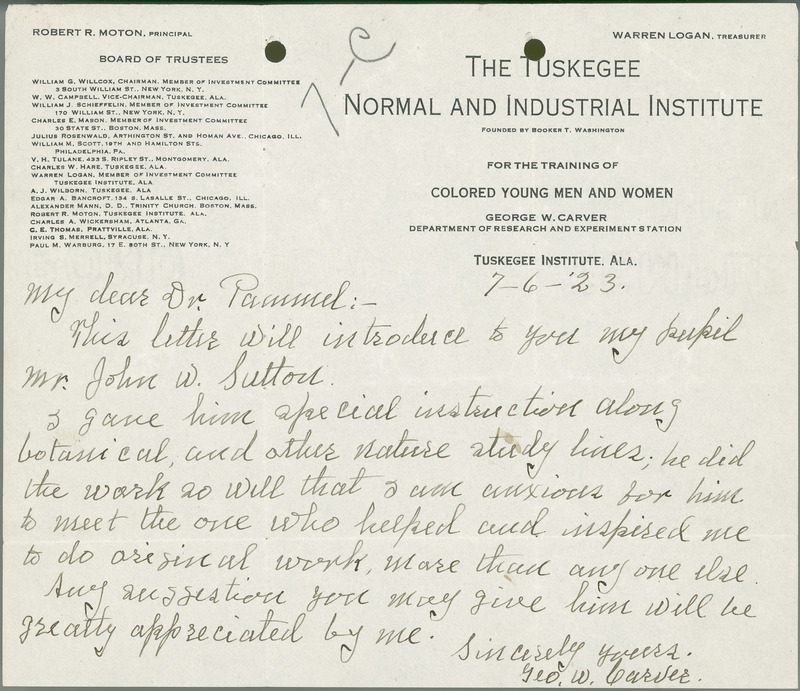 ROBERT R. MOTON, PRINCIPAL
WARREN LOGAN, TREASURER
BOARD OF TRUSTEES
WILLIAM G. WILLCOX, CHAIRMAN, MEMBER OF INVESTMENT COMMITTEE
3 SOUTH WILLIAM ST., NEW YORK, N. Y.
W. W. CAMPBELL, VICE-CHAIRMAN, TUSKEGEE, ALA.
WILLIAM J. SCHIEFFELIN, MEMBER OF INVESTMENT COMMITTEE
170 WILLIAM ST., NEW YORK, N. Y.
CHARLES E. MASON, MEMBER OF INVESTMENT COMMITTEE
30 STATE ST., BOSTON, MASS.
JULIUS ROSENWALD, ARTHINGTON ST. AND HOMAN AVE., CHICAGO, ILL.
WILLIAM M. SCOTT, 19TH AND HAMILTON STS.
PHILADELPHIA, PA.
V. H. TULANE, 433 S. RIPLEY ST., MONTGOMERY, ALA.
CHARLES W. HARE, TUSKEGEE, ALA.
WARREN LOGAN, MEMBER OF INVESTMENT COMMITTEE
TUSKEGEE INSTITUTE, ALA
A. J. WILBORN, TUSKEGEE, ALA
EDGAR A. BANCROFT, 134 S. LASALLE ST., CHICAGO, ILL.
ALEXANDER MANN, D. D., TRINITY CHURCH, BOSTON, MASS.
ROBERT R. MOTON, TUSKEGEE INSTITUTE, ALA.
CHARLES A. WICKERSHAM, ATLANTA, GA.
C. E. THOMAS, PRATTVILLE, ALA.
IRVING S. MERRELL, SYRACUSE, N. Y.
PAUL M. WARBURG, 17 E. 80TH ST., NEW YORK, N. Y
THE TUSKEGEE
NORMAL AND INDUSTRIAL INSTITUTE
FOUNDED BY BOOKER T. WASHINGTON
FOR THE TRAINING OF
COLORED YOUNG MEN AND WOMEN
GEORGE W. CARVER
DEPARTMENT OF RESEARCH AND EXPERIMENT STATION
TUSKEGEE INSTITUTE, ALA.
7-6-'23.
My dear Dr. Pammel:-
This letter will introduce to you my pupil
Mr. John W. Sutton.
I gave him special instruction along
botanical, and other nature study lines; he did
the work so will that I am anxious for him
to meet the one who helped and inspired me
to do original work, more than any one else.
Any suggestion you may give him will be
greatly appreciated by me.
Sincerely yours.
Geo. W. Carver.